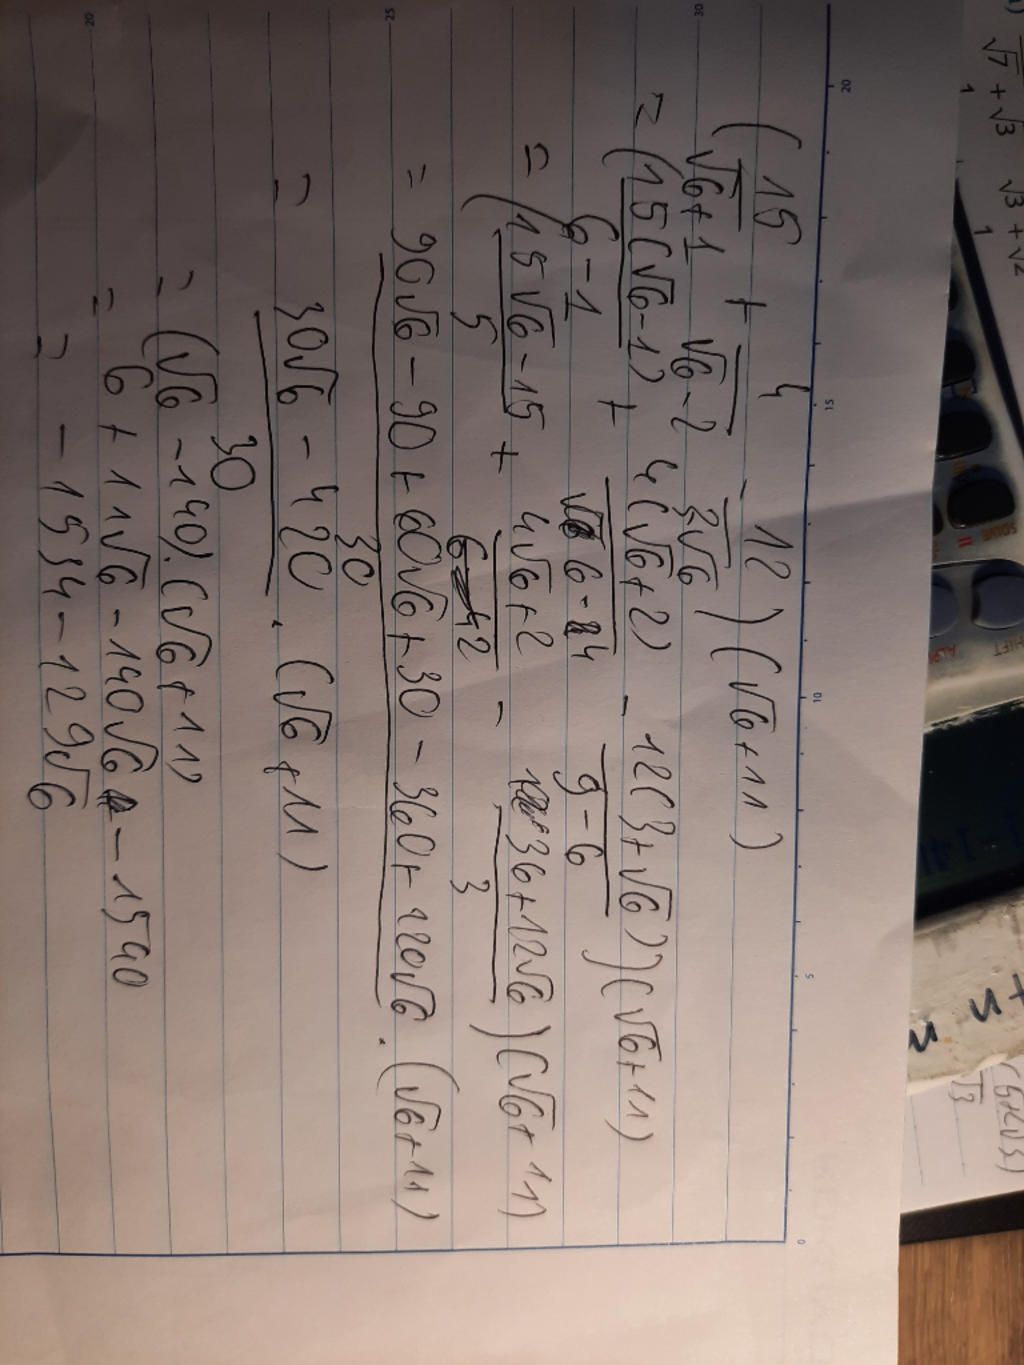 (15/(√6+1) + 4/(√6-2) - 12/(3√6))(√6+11)
= (15(√6-1)/(6-1) + 4(√6+2)/(6-4) - 12(3+√6)/(9-6))(√6+11)
= ((15√6-15)/5 + (4√6+2)/2 - (36+12√6)/3)(√6+11)
= (90√6 - 90 + 60√6 + 30 - 360 + 120√6)/30 . (√6+11)
= (30√6 - 420)/30 . (√6+11)
= (√6 - 140).(√6+11)
= 6 + 11√6 - 140√6 - 1540
= - 1534 - 129√6
20
25
30
20
15
10
5
0
√7 + √3
1
√3 + √2
1
SHIFT
ALP
+ n
m